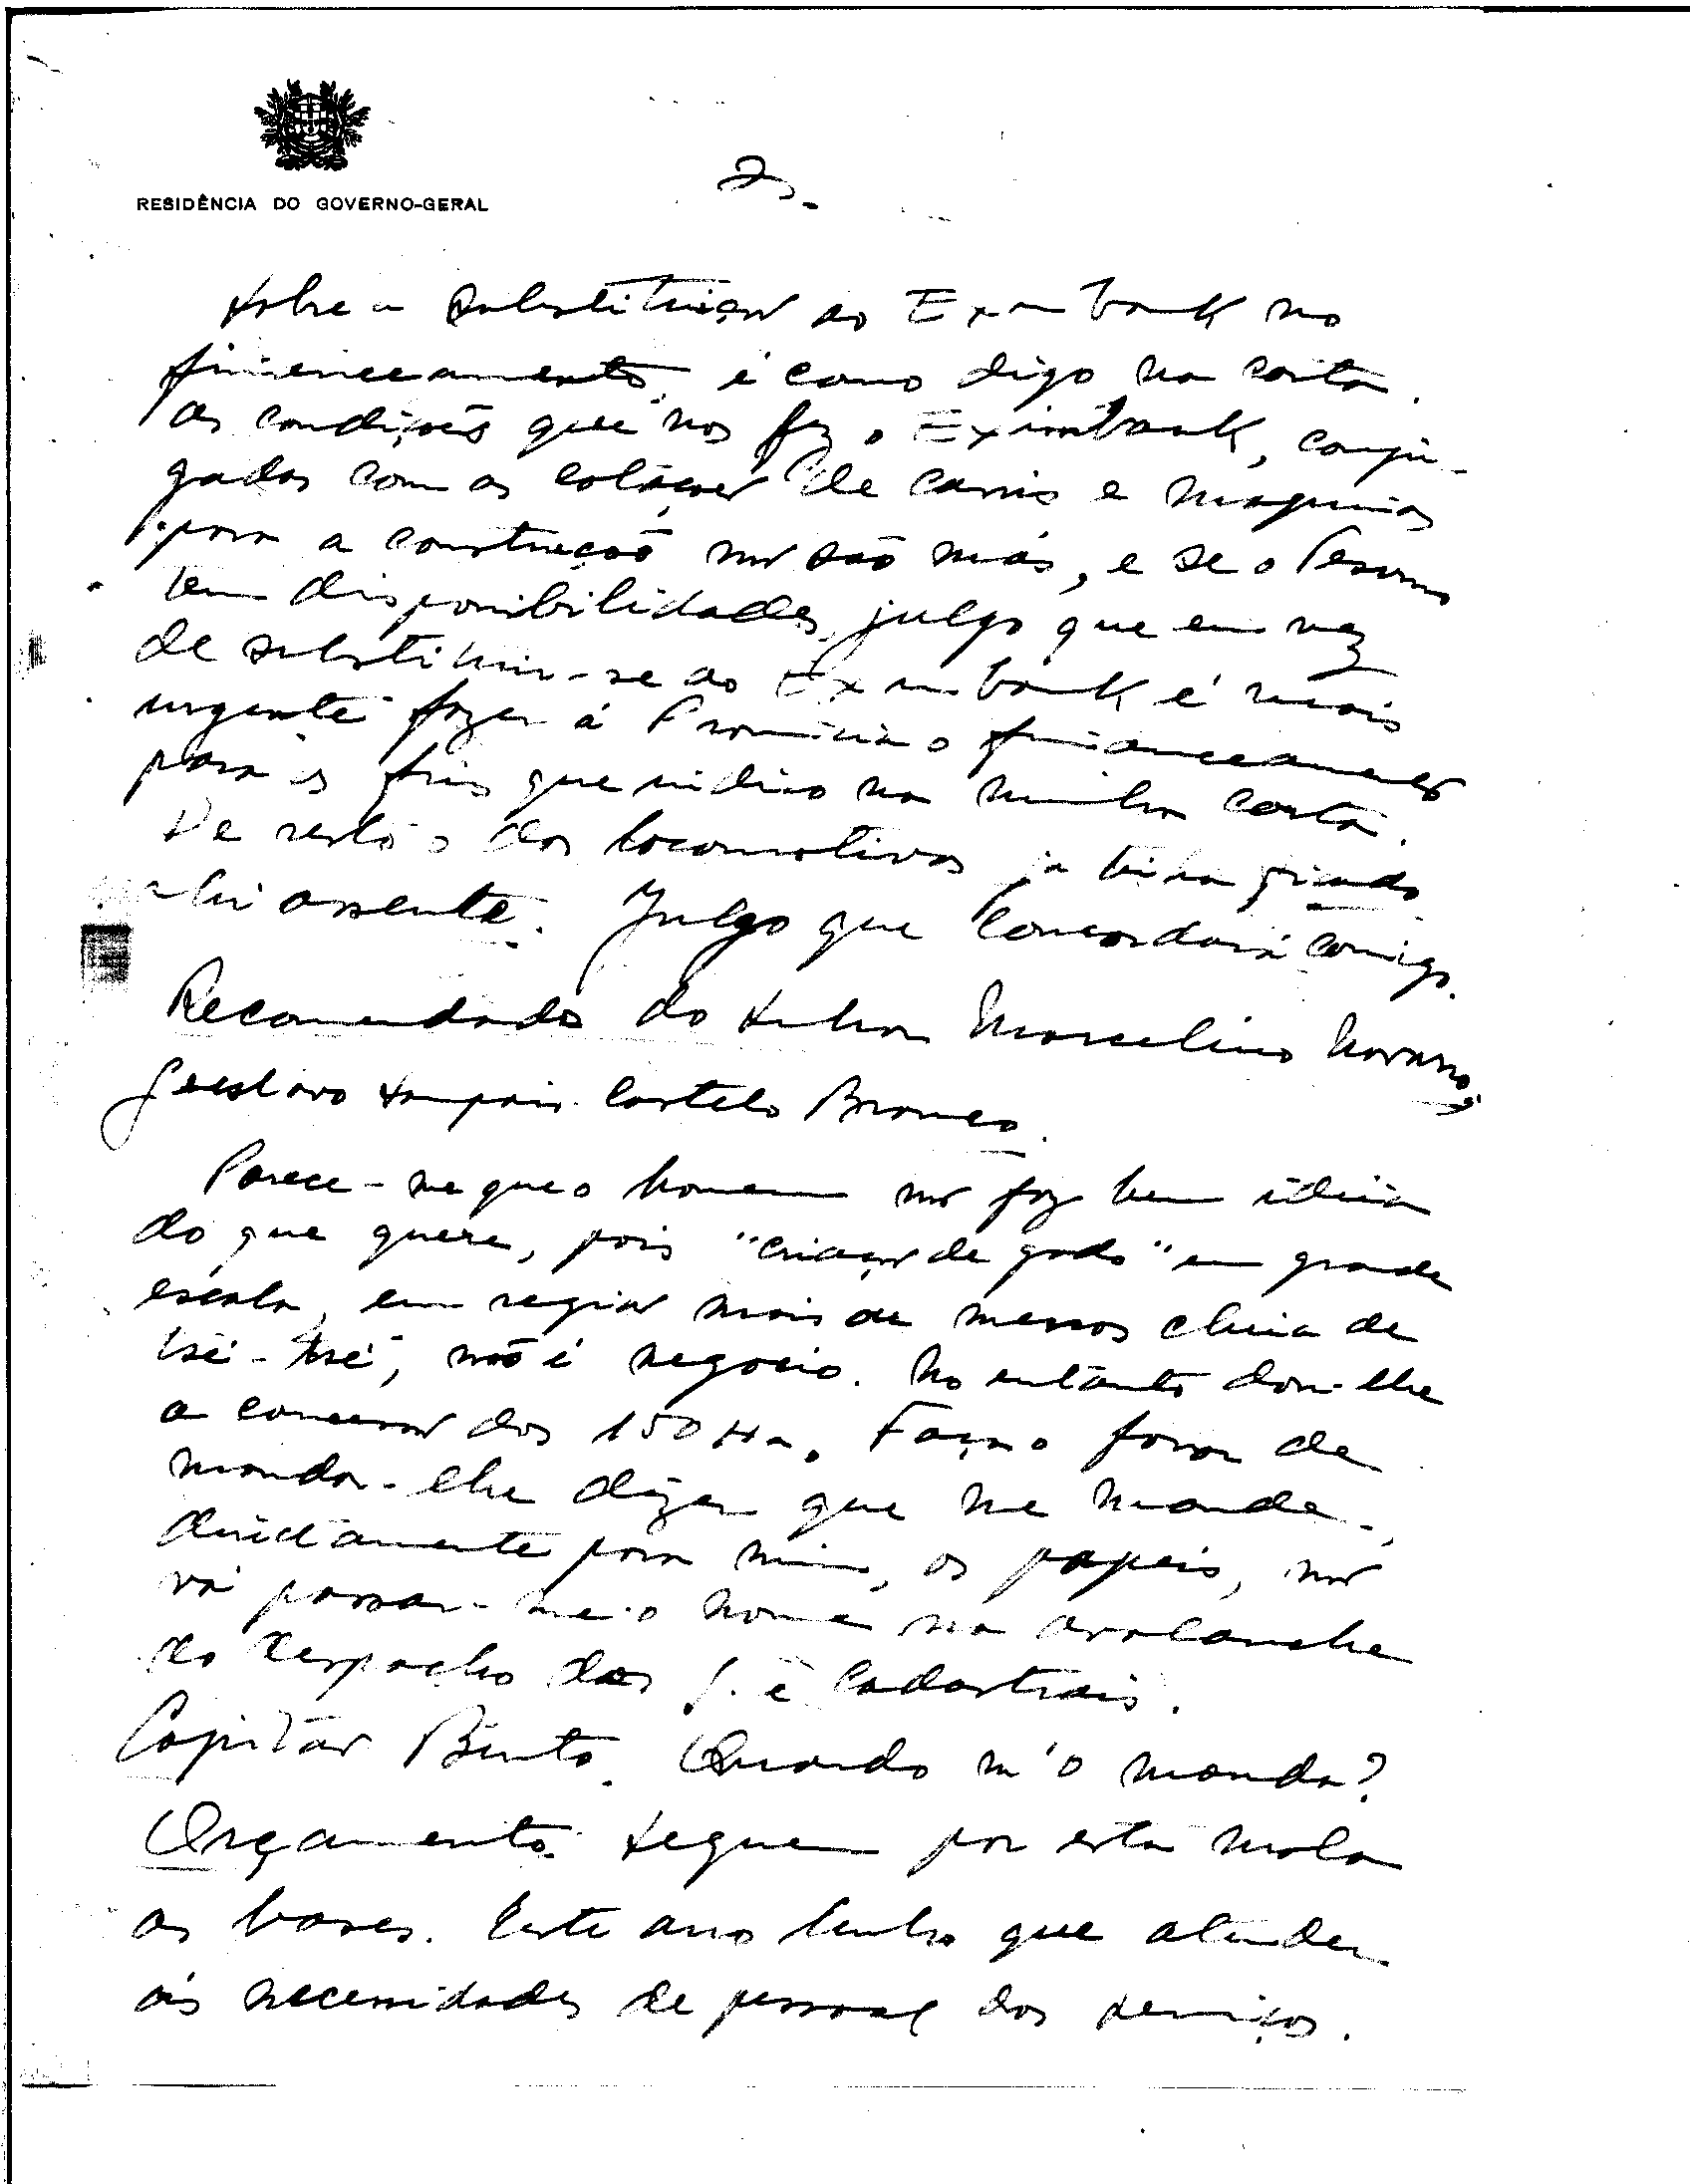 RESIDÊNCIA DO GOVERNO-GERAL
2.
Sobre a substituição ao Eximbank no
financeamento, é como digo na carta.
As condições que nos fez o Eximbank, conju-
gadas com as cotações de carris e maquinas
para a construção não são más, e se o Tesouro
tem disponibilidades, julgo que em vez
de substituir-se ao Eximbank é mais
urgente fazer á Provincia o financeamento
para os fins que indico na minha carta.
De resto o das locomotivas já tinha ficado
ahi assente. Julgo que concordará comigo.
Recomendado do Senhor Marcelino
Gustavo Sampaio Castelo Branco.
Parece-me que o homem não faz bem ideia
do que quere, pois "criação de gado" em grande
escala, em região mais ou menos cheia de
tsé-tsé, não é negocio. No entanto dou-lhe
a concessão dos 150 Ha. Faça o favor de
mandar-lhe dizer que me mande,
directamente para mim, os papeis, não
vá passar-me o nome na avalanche
do despacho dos S. e Cadastrais.
Capitão Bento. Quando m'o manda?
Orçamento. Seguem por esta mala
as bases. Este ano tenho que atender
ás necessidades de pessoal dos serviços.